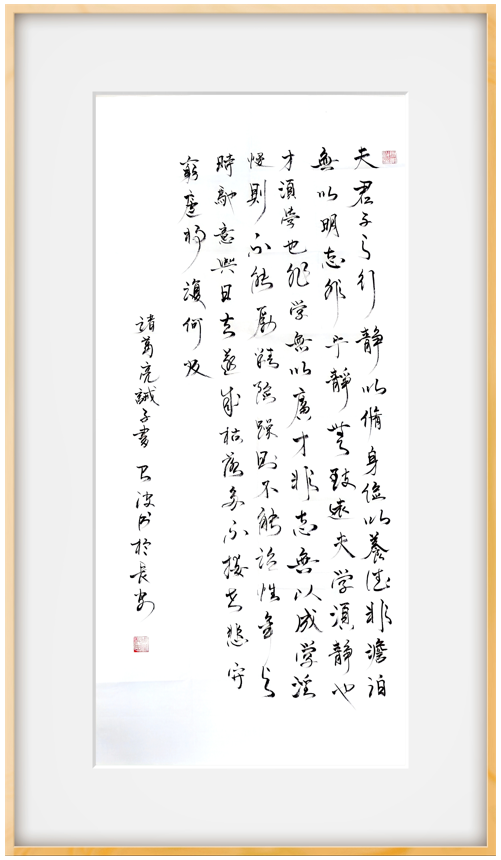 夫君子之行靜以脩身儉以養德非澹泊
無以明志非宁靜無致遠夫学須靜也
才須學也非学無以廣才非志無以成学淫
慢則不能勵精險躁則不能治性年与
時馳意與日去遂成枯落多不接世悲守
窮廬將復何及
諸葛亮誡子書 波书於長安